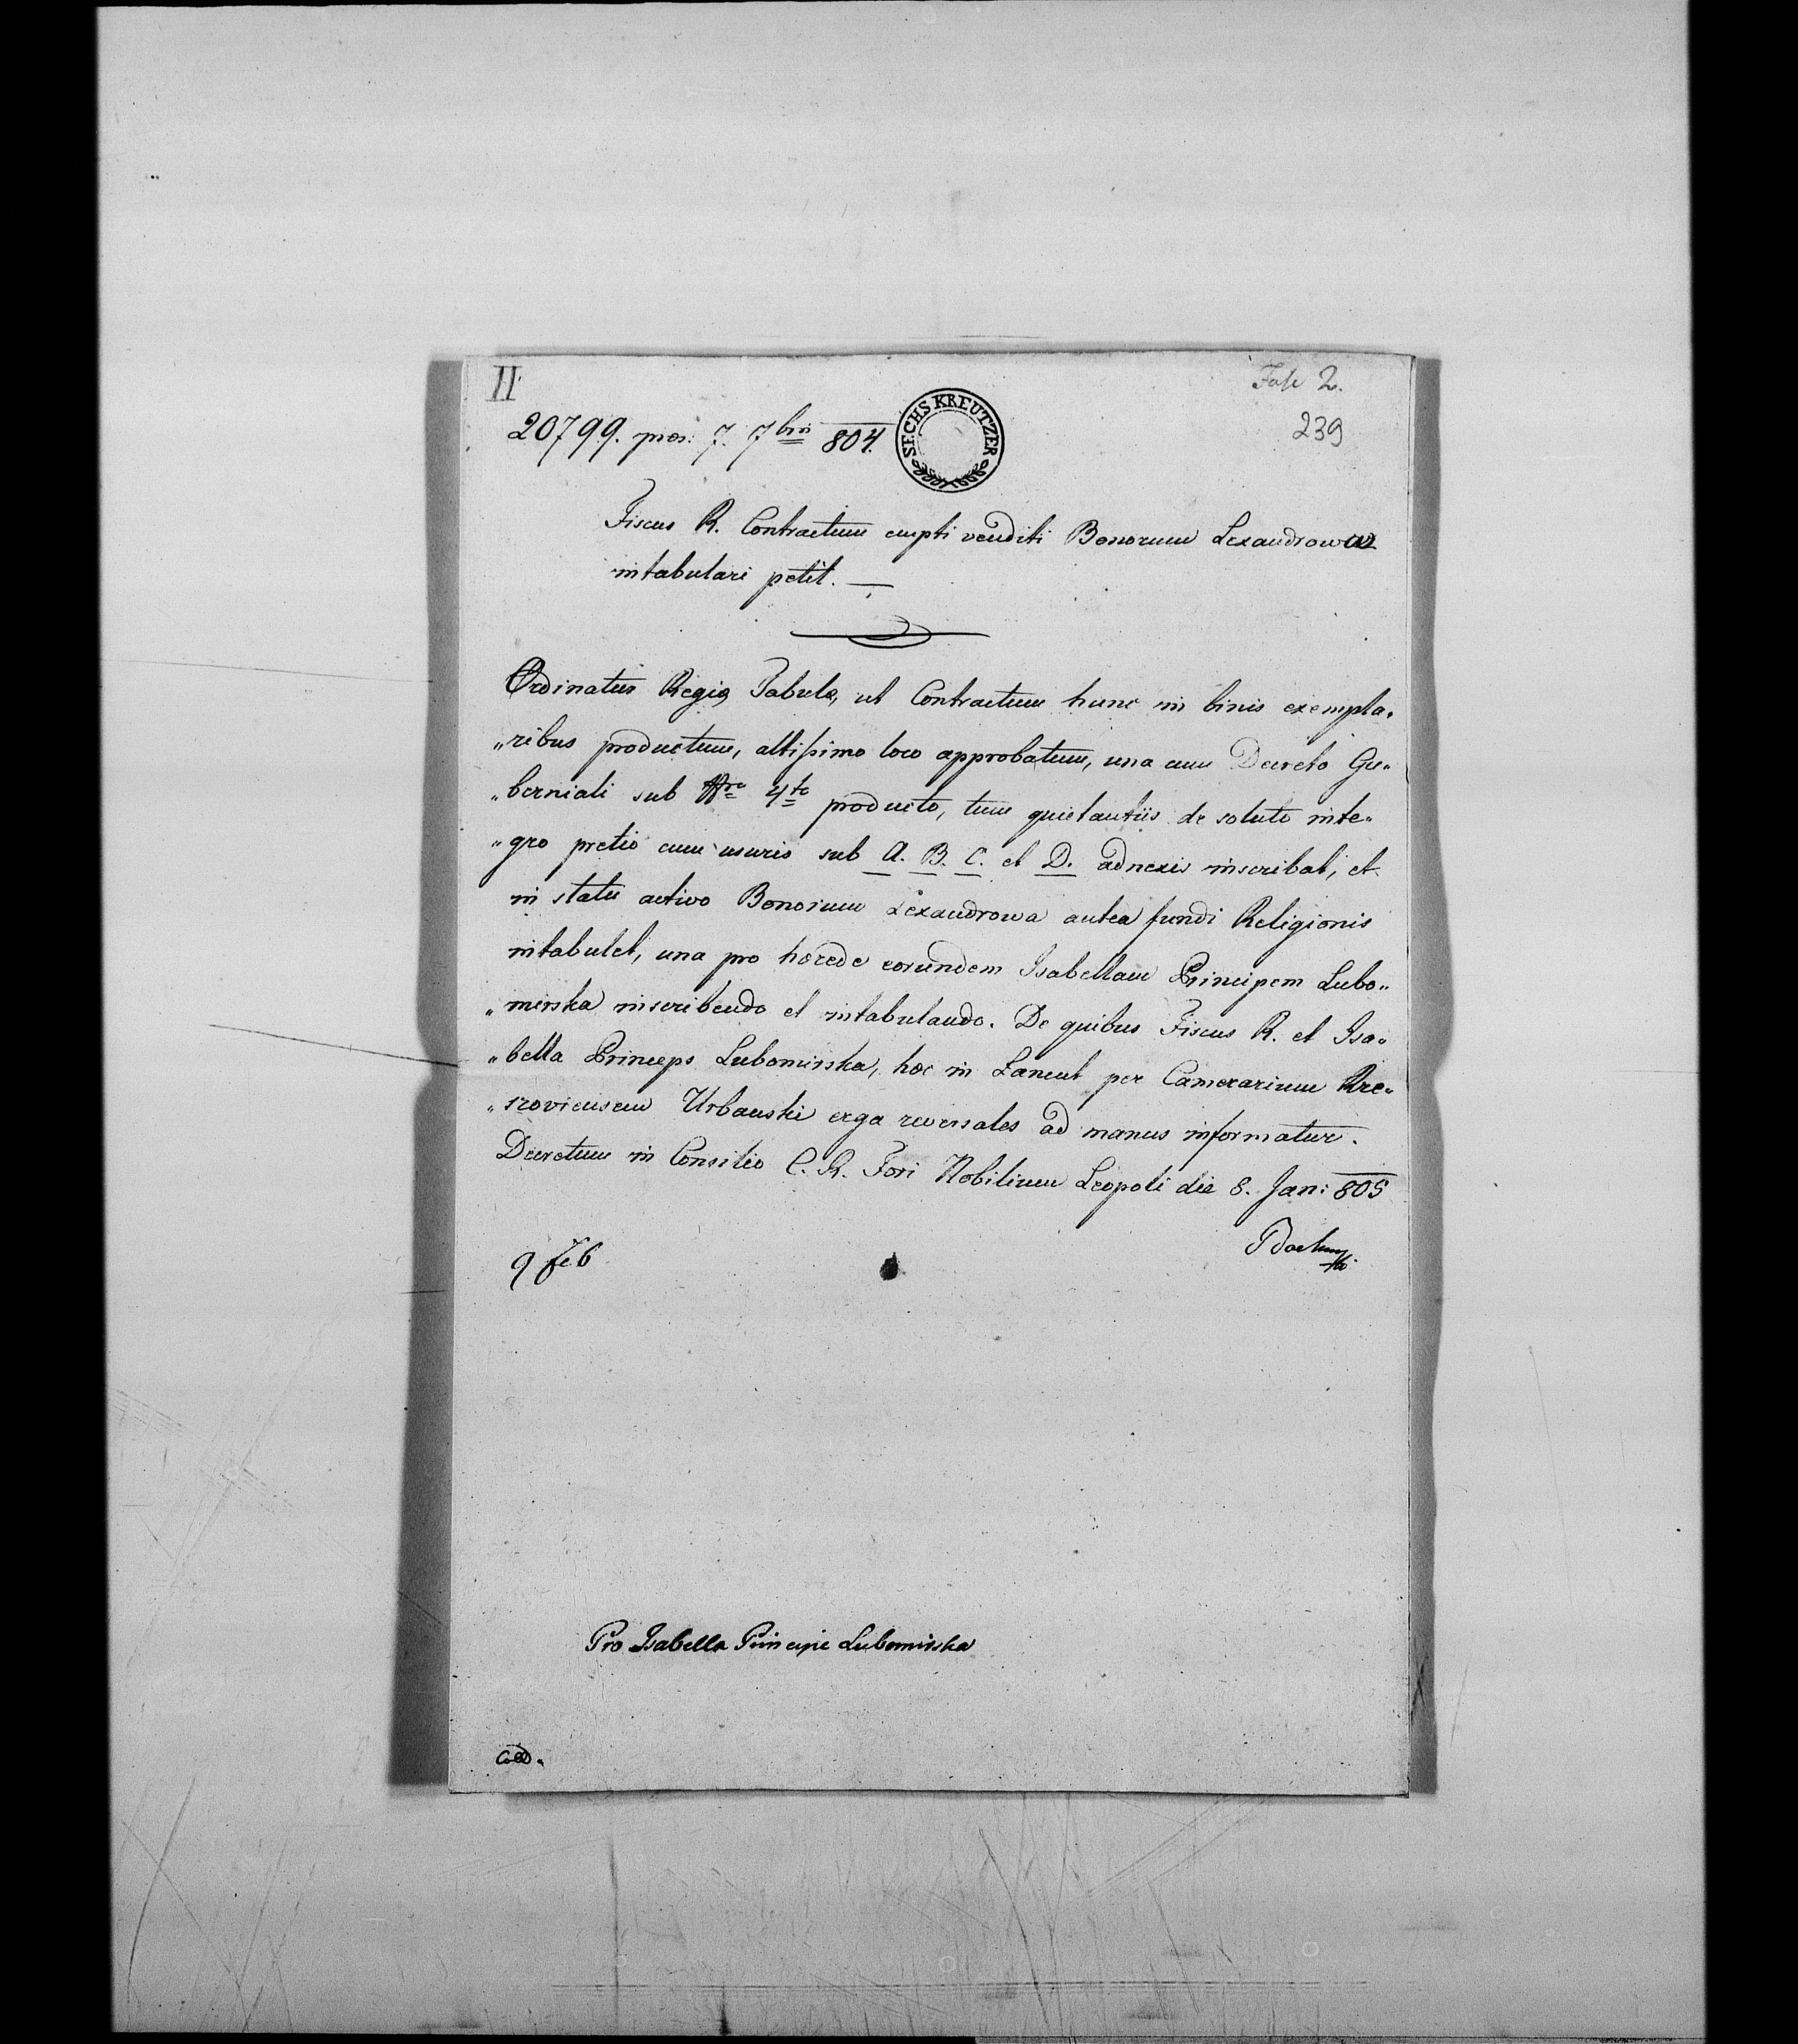 II
Fasc 2.
239
20799. præs: 7. 7bris 804.
SECHS KREUTZER
Fiscus R. Contractum empti venditi Bonorum Lexandrowa
intabulari petit. —
Ordinatur Regiæ Tabulæ, ut Contractum hunc in binis exempla„
„ribus productum, altissimo loco approbatum, una cum Decreto Gu„
„berniali sub Nro 4to producto, tum quietantiis de soluto inte„
„gro pretio cum usuris sub A. B. C. et D. adnexis inscribat, et
in statu activo Bonorum Lexandrowa antea fundi Religionis
intabulet, una pro hærede eorundem Isabellam Principem Lubo„
„mirska inscribendo et intabulando. De quibus Fiscus R. et Isa„
„bella Princeps Lubomirska, hæc in Lancut per Camerarium Rze„
„szoviensem Urbanski erga reversales ad manus informatur.
Decretum in Consilio C. R. Fori Nobilium Leopoli die 8. Jan: 805
9 Feb
Pro Isabella Principe Lubomirska
Coll.